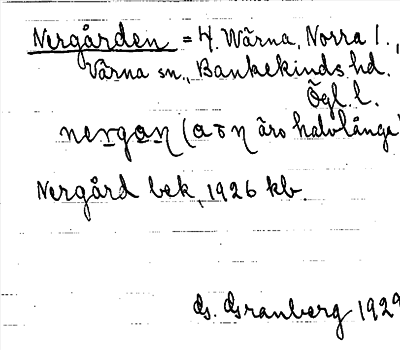 Nergården = H. Wärna, Norra 1.,
Värna sn., Bankekinds hd.
Ögl. l.
nergan (a o n äro halvlånga)
Nergård bek. 1926 kb.
G. Granberg 1929